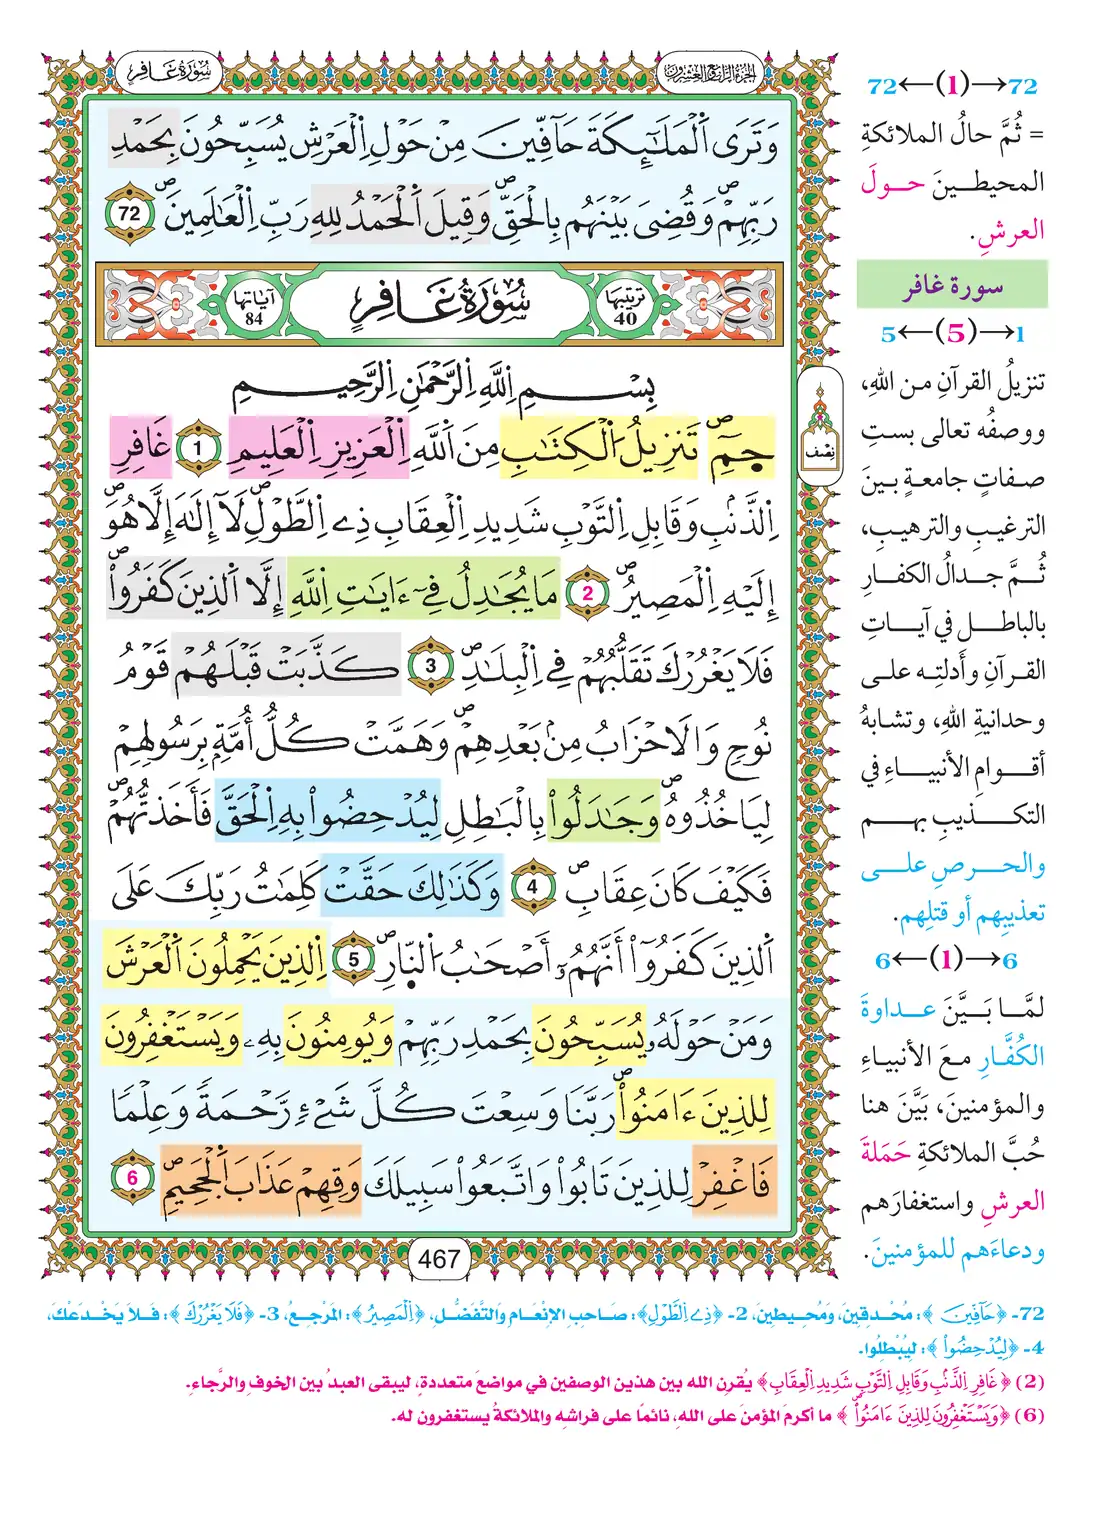 سُورَةُ غَافِرٍ
الجزء الرابع والعشرون
وَتَرَى اَ۬لْمَلَٰٓئِكَةَ حَآفِّينَ مِنْ حَوْلِ اِ۬لْعَرْشِ يُسَبِّحُونَ بِحَمْدِ
رَبِّهِمْۖ وَقُضِىَ بَيْنَهُم بِالْحَقِّۖ وَقِيلَ اَ۬لْحَمْدُ لِلهِ رَبِّ اِ۬لْعَٰلَمِينَۖ 72
آياتها 84
سُورَةُ غَافِرٍ
ترتيبها 40
بِسْمِ اِ۬للَّهِ اِ۬لرَّحْمَٰنِ اِ۬لرَّحِيمِ
حَمِٓۖ تَنزِيلُ اُ۬لْكِتَٰبِ مِنَ اَ۬للَّهِ اِ۬لْعَزِيزِ اِ۬لْعَلِيمِ 1 غَافِرِ
اِ۬لذَّنۢبِ وَقَابِلِ اِ۬لتَّوْبِ شَدِيدِ اِ۬لْعِقَابِ ذِے اِ۬لطَّوْلِۖ لَآ إِلَٰهَ إِلَّا هُوَۖ
إِلَيْهِ اِ۬لْمَصِيرُۖ 2 مَا يُجَٰدِلُ فِےٓ ءَايَٰتِ اِ۬للَّهِ إِلَّا اَ۬لذِينَ كَفَرُواْۖ
فَلَا يَغْرُرْكَ تَقَلُّبُهُمْ فِے اِ۬لْبِلَٰدِۖ 3 كَذَّبَتْ قَبْلَهُمْ قَوْمُ
نُوحٍ وَالَاحْزَابُ مِنۢ بَعْدِهِمْۖ وَهَمَّتْ كُلُّ أُمَّةِۢ بِرَسُولِهِمْ
لِيَاخُذُوهُۖ وَجَٰدَلُواْ بِالْبَٰطِلِ لِيُدْحِضُواْ بِهِ اِ۬لْحَقَّ فَأَخَذتُّهُمْۖ
فَكَيْفَ كَانَ عِقَابِۖ 4 وَكَذَٰلِكَ حَقَّتْ كَلِمَٰتُ رَبِّكَ عَلَى
اَ۬لذِينَ كَفَرُوٓاْ أَنَّهُمُۥٓ أَصْحَٰبُ اُ۬لنّ۪ارِۖ 5 اِ۬لذِينَ يَحْمِلُونَ اَ۬لْعَرْشَ
وَمَنْ حَوْلَهُۥ يُسَبِّحُونَ بِحَمْدِ رَبِّهِمْ وَيُومِنُونَ بِهِۦ وَيَسْتَغْفِرُونَ
لِلذِينَ ءَامَنُواْۖ رَبَّنَا وَسِعْتَ كُلَّ شَےْءٖ رَّحْمَةً وَعِلْمًا
فَاغْفِرْ لِلذِينَ تَابُواْ وَاتَّبَعُواْ سَبِيلَكَ وَقِهِمْ عَذَابَ اَ۬لْجَحِيمِۖ 6
467
نصف
72←(1)→72
= ثُمَّ حالُ الملائكةِ
المحيطينَ حولَ
العرشِ.
سورة غافر
5←(5)→1
تنزيلُ القرآنِ من اللهِ،
ووصفُه تعالى بستِ
صفاتٍ جامعةٍ بينَ
الترغيبِ والترهيبِ،
ثُمَّ جدالُ الكفارِ
بالباطلِ في آياتِ
القرآنِ وأدلتِه على
وحدانيةِ اللهِ، وتشابهُ
أقوامِ الأنبياءِ في
التكذيبِ بهم
والحرصِ على
تعذيبِهم أو قتلِهم.
6←(1)→6
لمَّا بَيَّنَ عداوةَ
الكُفَّارِ معَ الأنبياءِ
والمؤمنينَ، بَيَّنَ هنا
حُبَّ الملائكةِ حَمَلةَ
العرشِ واستغفارَهم
ودعاءَهم للمؤمنينَ.
72- ﴿حَآفِّينَ﴾: مُحْدِقِينَ، وَمُحِيطِينَ، 2- ﴿ذِے اِ۬لطَّوْلِ﴾: صَاحِبِ الإِنْعَامِ وَالتَّفَضُّلِ، ﴿اِ۬لْمَصِيرُ﴾: المَرْجِعُ، 3- ﴿فَلَا يَغْرُرْكَ﴾: فَلاَ يَخْدَعْكَ،
4- ﴿لِيُدْحِضُواْ﴾: لِيُبْطِلُوا.
(2) ﴿غَافِرِ اِ۬لذَّنۢبِ وَقَابِلِ اِ۬لتَّوْبِ شَدِيدِ اِ۬لْعِقَابِ﴾ يُقرن الله بين هذين الوصفين في مواضعَ متعددةٍ، ليبقى العبدُ بين الخوفِ والرَّجاءِ.
(6) ﴿وَيَسْتَغْفِرُونَ لِلذِينَ ءَامَنُواْۖ﴾ ما أكرمَ المؤمنَ على اللهِ، نائمًا على فراشِه والملائكةُ يستغفرون له.